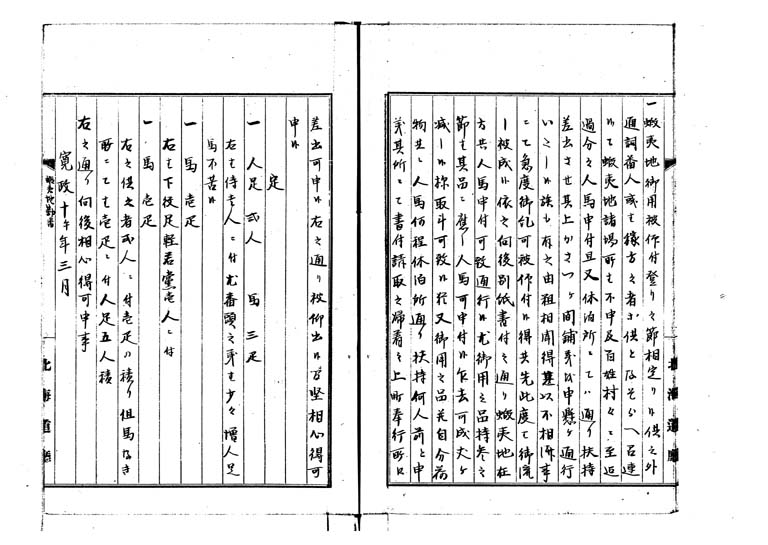 一蝦夷地御用被仰付登り之節相定り候供之外
通詞番人或ハ稼方之者等供となぞらへ召連
候て蝦夷地諸場所ハ不申及百姓村々ニ至迄
過分之人馬申付且又休泊所ニてハ通り扶持
差出させ其上かさつヶ間鋪義を申懸ヶ通行
いたし候族も有之由粗相聞得甚以不相済事
ニて急度御糺可被仰付候得共先此度ハ御流
し被成候依之向後別紙書付之通り蝦夷地在
方共人馬申付可致通行候尤御用之品持参之
節ハ其品ニ応し人馬可申付候乍去可成丈ヶ
減し候様取斗可致候於又御用之品并自分荷
物共ニ人馬何程休泊所通り扶持何人前と申
義其所ニて書付請取之帰着之上町奉行所江
差出可申候右之通り被仰出候間堅相心得可
申候
定
一 人足 弐人 馬 三疋
右ハ侍壱人ニ付尤番頭之身ハ少々増人足
馬不苦候
一 馬 壱疋
右ハ下役足軽若党壱人ニ付
一 馬 壱疋
右之供之者弐人ニ付壱疋の積り但馬なき
所ニても壱疋ニ付人足五人積
右之通り向後相心得可申事
寛政十午年三月
北海道廳
北海道廳